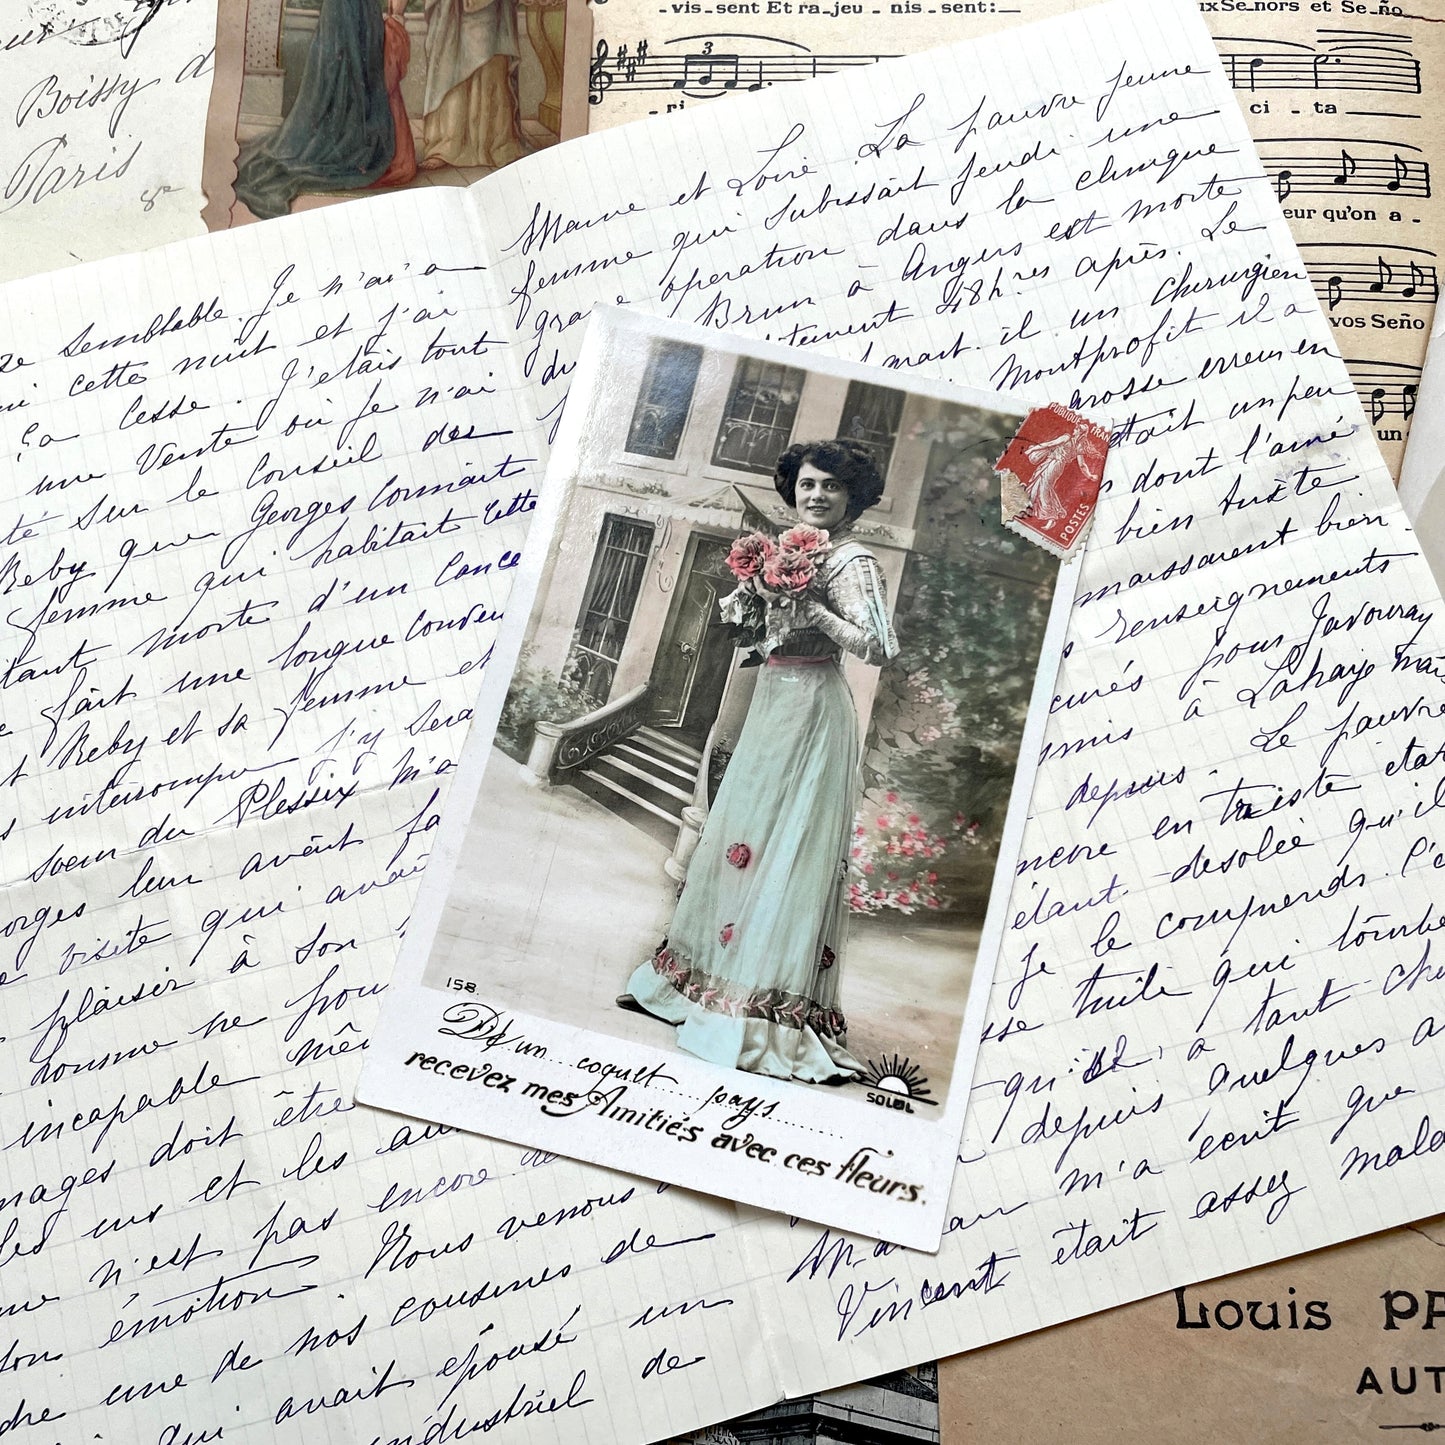 -vis-sent Et ra-jeu - nis - sent:
Se-nors et Se-ño
3
- ri
ci - ta
eur qu'on a -
vos Seño
un
Boissy d
Paris
8e
semblable. Je n'ai a
cette nuit et j'ai
ça cesse. J'étais tout
une Vente où je n'ai
té sur le Conseil des
Reby que Georges connaît
femme qui habitait cette
tant morte d'un cance
fait une longue conver
t Reby et sa femme et
s interrompu j'y sera
soeur du Plessix m'a
orges leur avait fa
visite qui avai
plaisir à son
homme ne pou
incapable mêm
mages doit être
les uns et les au
n'est pas encore re
son émotion. Nous venons
dre une de nos cousines de
qui avait épousé un
industriel de
Maine et Loire. La pauvre jeune
femme qui subissait jeudi une
grave operation dans la clinique
du Brun à Angers est morte
tement 48h.res après. Le
mart. il un Chirurgien
Montprofit il a
grosse erreur en
était un peu
dont l'aimé
bien triste
naissaient bien
renseignements
curés pour Javouray
mis à Lahaye mais
depuis. Le pauvre
ncore en triste état
étant desolée qu'il
je le comprends. C'e
sse tuile qui tombe
qu'il a tant che
depuis quelques a
m'a écrit que
Vincent était assez mala
REPUBLIQUE FRANÇ
POSTES
158.
D' un coquet pays
recevez mes Amitiés avec ces fleurs.
SOLEIL
Louis PA
AUT